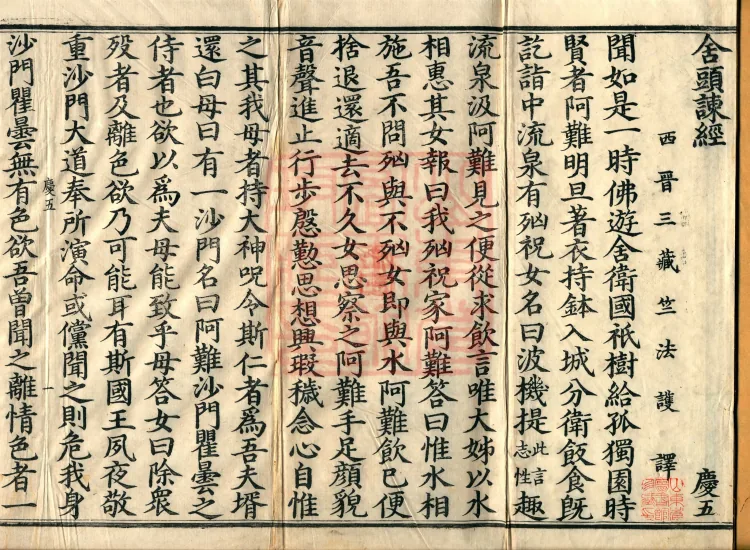 舍頭諫經 慶五
西晉三藏竺法護 譯
聞如是一時佛遊舍衛國祇樹給孤獨園時
賢者阿難明旦著衣持鉢入城分衛飯食旣
訖詣中流泉有凶祝女名曰波機提此言志性趣
流泉汲阿難見之便從求飲言唯大姊以水
相惠其女報曰我凶祝家阿難答曰惟水相
施吾不問凶與不凶女即與水阿難飲已便
捨退還適去不久女思察之阿難手足顏貌
音聲進止行步慇懃思想興瑕穢念心自惟
之其我母者持大神呪令斯仁者爲吾夫壻
還白母曰有一沙門名曰阿難沙門瞿曇之
侍者也欲以爲夫母能致乎母答女曰除衆
歿者及離色欲乃可能耳有斯國王夙夜敬
重沙門大道奉所演命或儻聞之則危我身
慶五 一
沙門瞿曇無有色欲吾曾聞之離情色者一